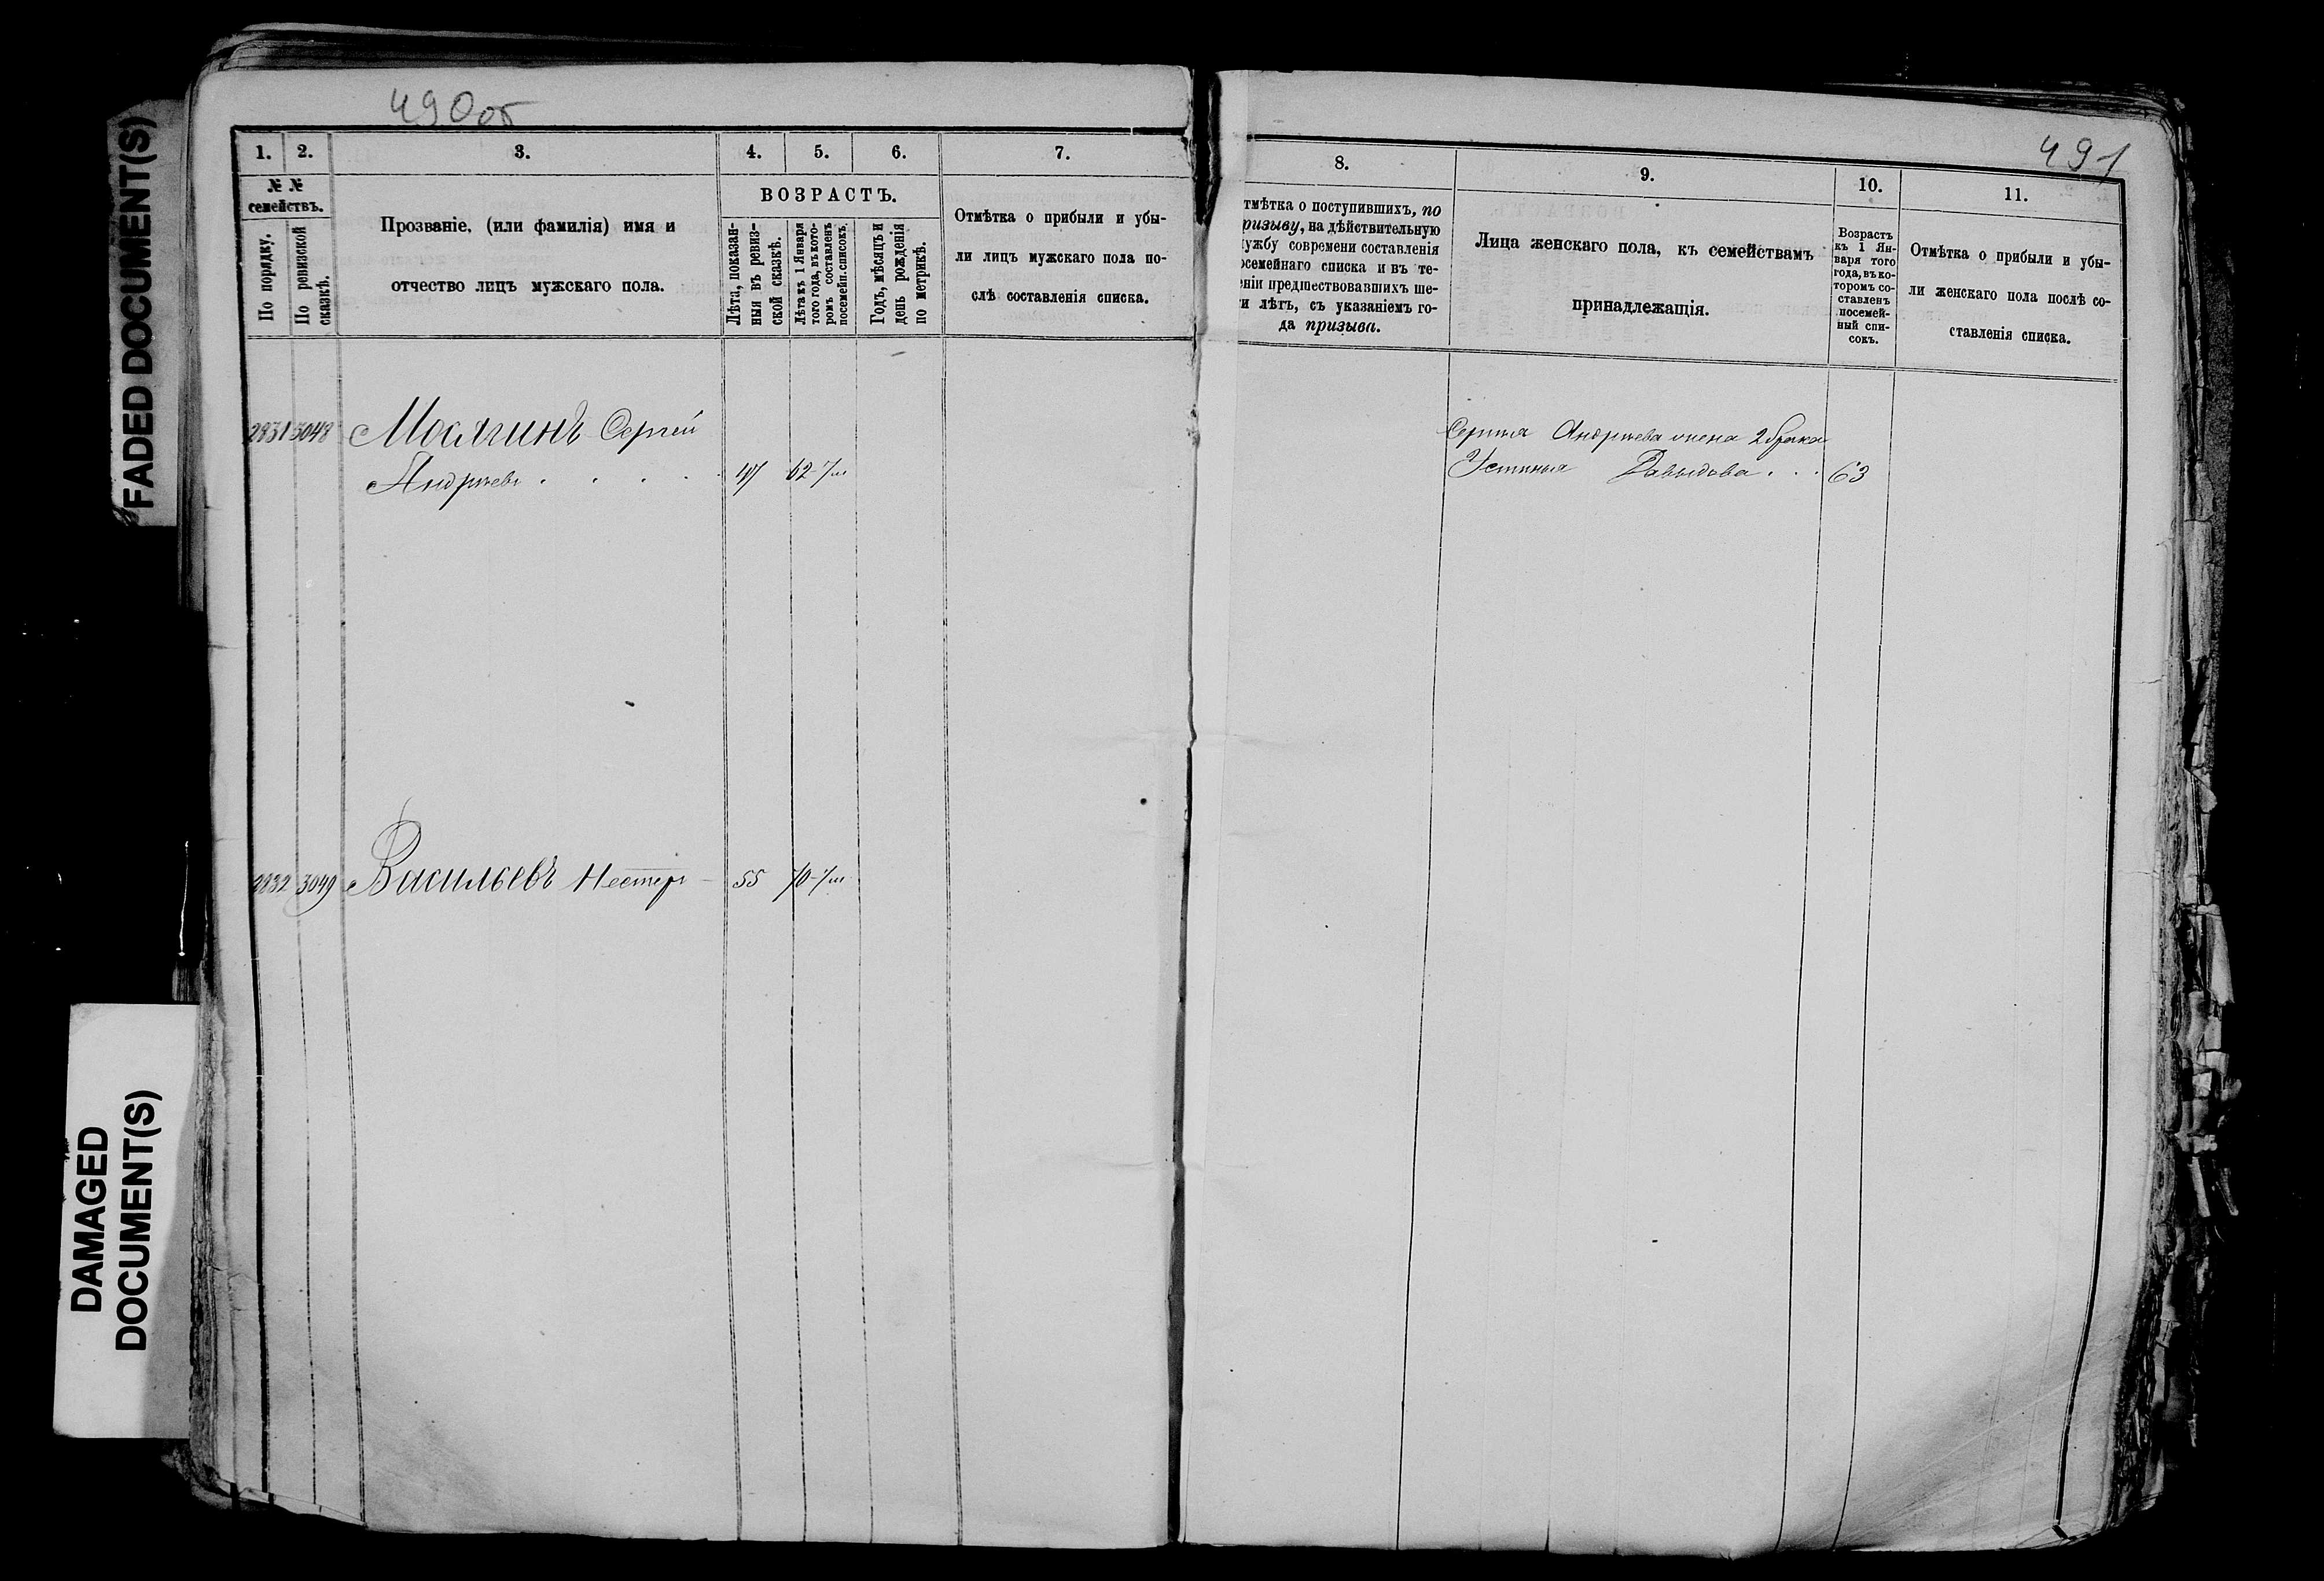 FADED DOCUMENT(S)
DAMAGED
DOCUMENT(S)
490об
1. 2. 3. 4. 5. 6. 7.
№ №
семействъ.
По порядку.
По ревизской
сказкѣ.
Прозваніе, (или фамилія) имя и
отчество лицъ мужскаго пола.
ВОЗРАСТЪ.
Лѣта, показан-
ныя въ ревиз-
ской сказкѣ.
Лѣта къ 1 Января
того года, въ кото-
ромъ составленъ
посемейн. списокъ.
Годъ, мѣсяцъ и
день рожденія
по метрикѣ.
Отмѣтка о прибыли и убы-
ли лицъ мужскаго пола по-
слѣ составленія списка.
2831 3048 Сергей
Андреевъ . . . . 47 62
2832 3049 Васильевъ Нестеръ 55 70
491
8. 9. 10. 11.
тмѣтка о поступившихъ, по
ризыву, на дѣйствительную
ужбу современи составленія
осемейнаго списка и въ те-
еніи предшествовавшихъ ше-
и лѣтъ, съ указаніемъ го-
да призыва.
Лица женскаго пола, къ семействамъ
принадлежащія.
Возрастъ
къ 1 Ян-
варя того
года, въ ко-
торомъ со-
ставленъ
посемей-
ный спи-
сокъ.
Отмѣтка о прибыли и убы-
ли женскаго пола послѣ со-
ставленія списка.
Сергѣя Андреева жена 2 брака
Устинья Давыдова . . . 63